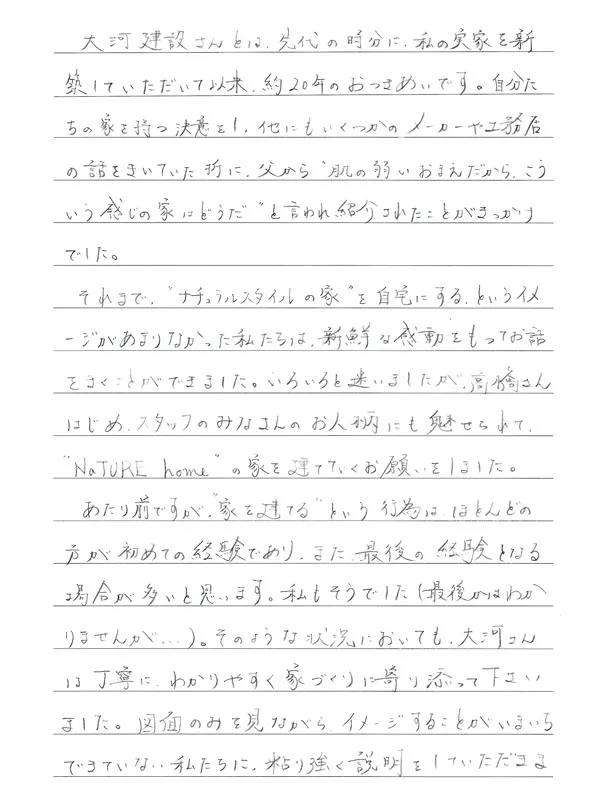 大河建設さんとは、先代の時分に、私の実家を新
築していただいて以来、約20年のおつきあいです。自分た
ちの家を持つ決意をし、他にもいくつかのメーカーや工務店
の話をきいていた折に、父から“肌の弱いおまえだから、こう
いう感じの家はどうだ”と言われ紹介されたことがきっかけ
でした。
それまで、“ナチュラルスタイルの家”を自宅にする、というイメ
ージがあまりなかった私たちは、新鮮な感動をもってお話
をきくことができました。いろいろと迷いましたが、高橋さん
はじめ、スタッフのみなさんのお人柄にも魅せられて、
“NaTURE home”の家を建てていくお願いをしました。
あたり前ですが、“家を建てる”という行為は、ほとんどの
方が初めての経験であり、また、最後の経験となる
場合が多いと思います。私もそうでした(最後かはわか
りませんが...)。そのような状況においても、大河さん
は丁寧に、わかりやすく家づくりに寄り添って下さい
ました。図面のみを見ながら、イメージすることがいまいち
できていない私たちに、粘り強く説明をしていただきま